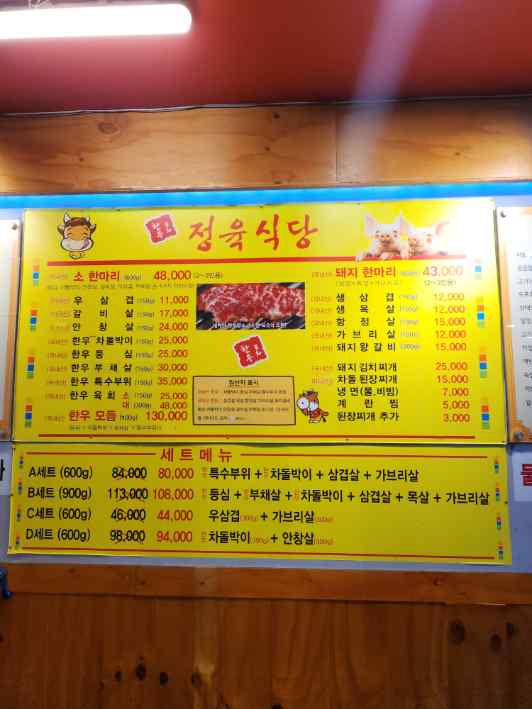 정육식당
소 한마리 (600g) 48,000 (2~3인용)
우 삼 겹 (150g) 11,000
갈 비 살 (150g) 17,000
안 창 살 (150g) 24,000
한우 차돌박이 (150g) 25,000
한우 등 심 (150g) 25,000
한우 부 채 살 (150g) 30,000
한우 특수부위 (150g) 35,000
한우 육 회 소 (150g) 25,000
대 48,000
한우 모듬 130,000
돼지 한마리 43,000
(2~3인용)
생 삼 겹 12,000
생 목 살 12,000
항 정 살 15,000
가 브 리 살 12,000
돼지 왕 갈 비 15,000
돼지 김치찌개 25,000
차돌 된장찌개 15,000
냉 면 (물,비빔) 7,000
계 란 찜 5,000
된장찌개 추가 3,000
원산지 표시
세트메뉴
A세트 (600g) 84,000 80,000 특수부위 + 차돌박이 + 삼겹살 + 가브리살
B세트 (900g) 113,000 108,000 등심 + 부채살 + 차돌박이 + 삼겹살 + 목살 + 가브리살
C세트 (600g) 46,000 44,000 우삼겹(300g) + 가브리살(300g)
D세트 (600g) 98,000 94,000 차돌박이(300g) + 안창살(300g)